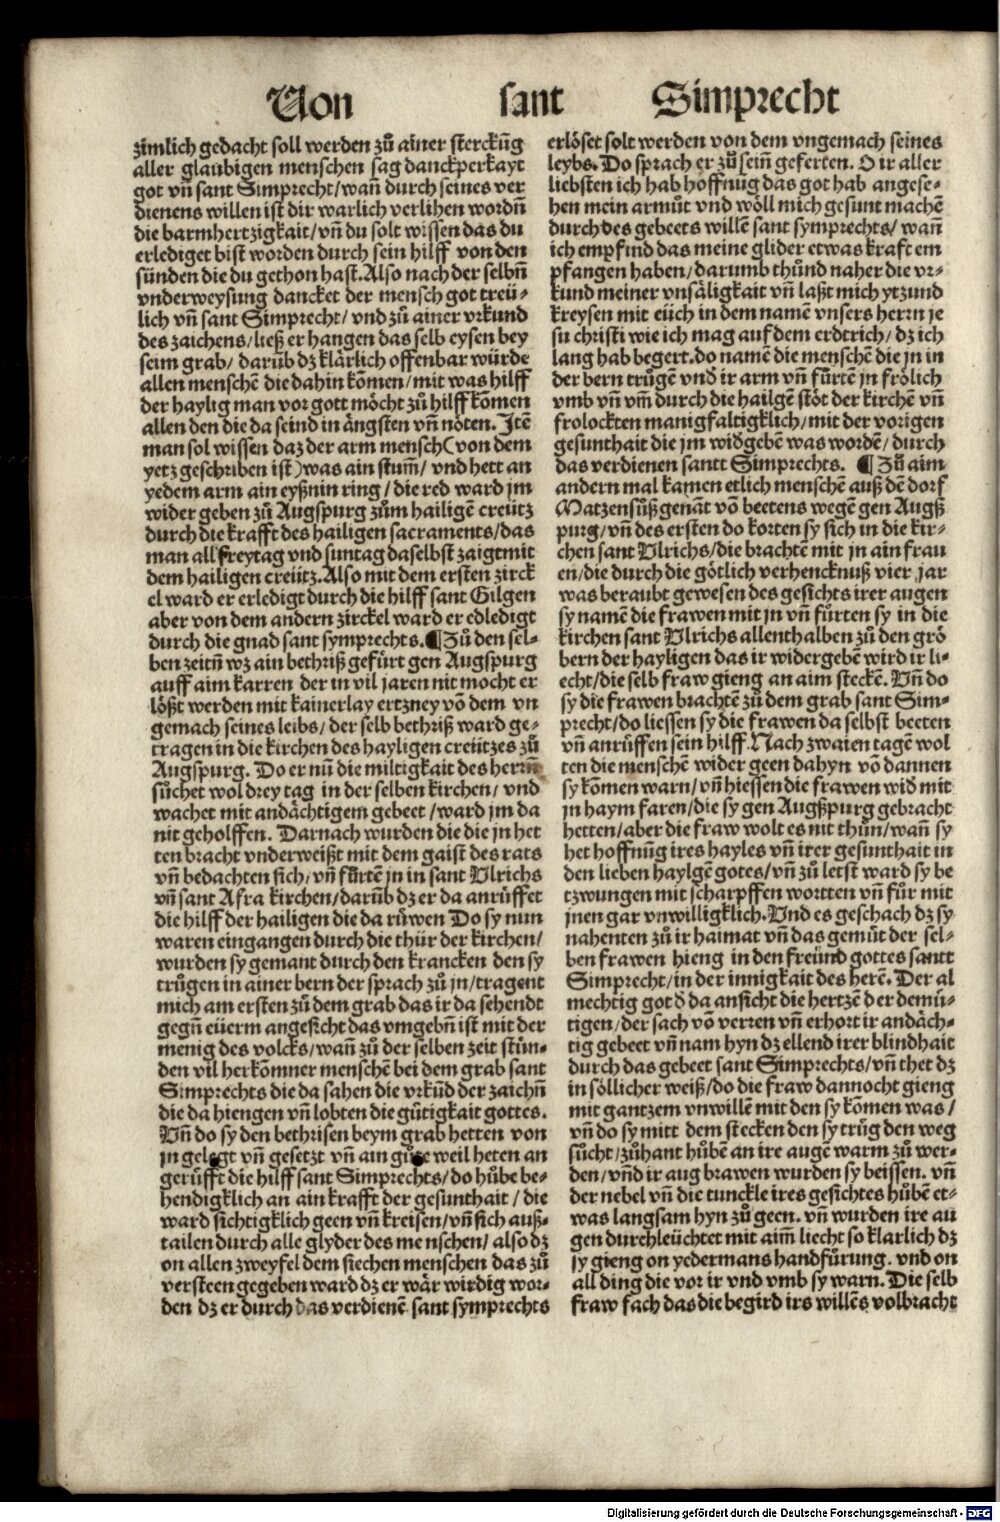 Von sant Simprecht
zimlich gedacht soll werden zů ainer sterckūg
aller glaubigen menschen sag danckperkayt
got vñ sant Simprecht/wañ durch seines ver
dienens willen ist dir warlich verlihen wordñ
die barmhertzigkait/vñ du solt wissen das du
erlediget bist worden durch sein hilff von den
sünden die du gethon hast.Also nach der selbñ
vnderweysung dancket der mensch got treü⸗
lich vñ sant Simprecht/vnd zů ainer vrkund
des zaichens/ließ er hangen das selb eysen bey
seim grab/darūb dz klärlich offenbar würde
allen menschē die dahin kōmen/mit was hilff
der haylig man vor gott möcht zů hilff kōmen
allen den die da seind in ängsten vñ nöten. Jtē
man sol wissen daz der arm mensch(von dem
yetz geschriben ist)was ain stum̄/vnd hett an
yedem arm ain eyßnin ring/die red ward jm
wider geben zů Augspurg zům hailigē creütz
durch die krafft des hailigen sacraments/das
man all freytag vnd suntag daselbst zaigt mit
dem hailigen creütz.Also mit dem ersten zirck
el ward er erledigt durch die hilff sant Gilgen
aber von dem andern zirckel ward er edledigt
durch die gnad sant symprechts.¶Zů den sel⸗
ben zeitñ wz ain bethriß gefürt gen Augspurg
auff aim karren der in vil jaren nit mocht er
lößt werden mit kainerlay ertzney vō dem vn
gemach seines leibs/der selb bethriß ward ge⸗
tragen in die kirchen des hayligen creützes zů
Augspurg. Do er nū die miltigkait des herrñ
sůchet wol drey tag in der selben kirchen/vnd
wachet mit andächtigem gebeet/ward jm da
nit geholffen. Darnach wurden die die jn het
ten bracht vnderweißt mit dem gaist des rats
vñ bedachten sich/vñ fůrtē jn in sant Ulrichs
vñ sant Afra kirchen/darūb dz er da anrůffet
die hilff der hailigen die da růwen Do sy nun
waren eingangen durch die thür der kirchen/
wurden sy gemant durch den krancken den sy
trůgen in ainer bern der sprach zů jn/tragent
mich am ersten zů dem grab das ir da sehendt
gegñ eüerm angesicht das vmgebñ ist mit der
menig des volcks/wañ zů der selben zeit stůn⸗
den vil herkōmner menschē bei dem grab sant
Simprechts die da sahen die vrkūd der zaichñ
die da hiengen vñ lobten die gůtigkait gottes.
Vñ do sy den bethrisen beym grab hetten von
jn gelegt vñ gesetzt vñ ain gůte weil heten an
gerůfft die hilff sant Simprechts/do hůbe be⸗
hendigklich an ain krafft der gesunthait/die
ward sichtigklich geen vñ kreisen/vñ sich auß⸗
tailen durch alle glyder des menschen/also dz
on allen zweyfel dem siechen menschen das zů
versteen gegeben ward dz er wär wirdig wor⸗
den dz er durch das verdienē sant symprechts
erlöset solt werden von dem vngemach seines
leybs.Do sprach er zů sein̄ geferten. O ir aller
liebsten ich hab hoffnūg das got hab angese⸗
hen mein armůt vnd wöll mich gesunt machē
durch des gebeets willē sant symprechts/wañ
ich empfind das meine glider etwas kraft em
pfangen haben/darumb thůnd naher die vr⸗
kund meiner vnsäligkait vñ laßt mich ytzund
kreysen mit eüch in dem namē vnsers herrn je
su christi wie ich mag auf dem erdtrich/dz ich
lang hab begert.do namē die menschē die jn in
der bern trůgē vnd ir arm vñ fůrtē jn frölich
vmb vñ vm̄ durch die hailgē stöt der kirchē vñ
frolockten manigfaltigklich/mit der vorigen
gesunthait die jm widgebē was wordē/durch
das verdienen santt Simprechts. ¶Zů aim
andern mal kamen etlich menschē auß dē dorf
Matzensüß genāt vō beetens wegē gen Augß
purg/vñ des ersten do korten sy sich in die kir⸗
chen sant Ulrichs/die brachtē mit jn ain frau
en/die durch die götlich verhencknuß vier jar
was beraubt gewesen des gesichts irer augen
sy namē die frawen mit jn vñ fůrten sy in die
kirchen sant Ulrichs allenthalben zů den grö
bern der hayligen das ir widergebē wird ir li⸗
echt/die selb fraw gieng an aim steckē. Vñ do
sy die frawen brachtē zů dem grab sant Sim⸗
precht/do liessen sy die frawen da selbst beeten
vñ anrůffen sein hilff.Nach zwaien tagē wol
ten die menschē wider geen dahyn vō dannen
sy kōmen warn/vñ hiessen die frawen wid mit
jn haym faren/die sy gen Augßpurg gebracht
hetten/aber die fraw wolt es nit thůn/wañ sy
het hoffnūg ires hayles vñ irer gesunthait in
den lieben haylgē gotes/vñ zů letst ward sy be
tzwungen mit scharpffen wortten vñ für mit
jnen gar vnwilligklich.Vnd es geschach dz sy
nahenten zů ir haimat vñ das gemůt der sel⸗
ben frawen hieng in den freünd gottes santt
Simprecht/in der innigkait des herē. Der al
mechtig got d da ansicht die hertzē der demü⸗
tigen/der sach vō verren vñ erhort ir andäch⸗
tig gebeet vñ nam hyn dz ellend irer blindhait
durch das gebeet sant Simprechts/vñ thet dz
in söllicher weiß/do die fraw dannocht gieng
mit gantzem vnwillē mit den sy kōmen was/
vñ do sy mitt dem stecken den sy trůg den weg
sůcht/zůhant hůbē an ire augē warm zů wer⸗
den/vñd ir aug brawen wurden sy beissen. vñ
der nebel vñ die tunckle ires gesichtes hůbē et⸗
was langsam hyn zů geen. vñ wurden ire au
gen durchleüchtet mit aim̄ liecht so klarlich dz
sy gieng on yedermans handfůrung. vnd on
all ding die vor ir vnd vmb sy warn. Die selb
fraw sach das die begird irs willēs volbracht
Digitalisierung gefördert durch die Deutsche Forschungsgemeinschaft - DFG